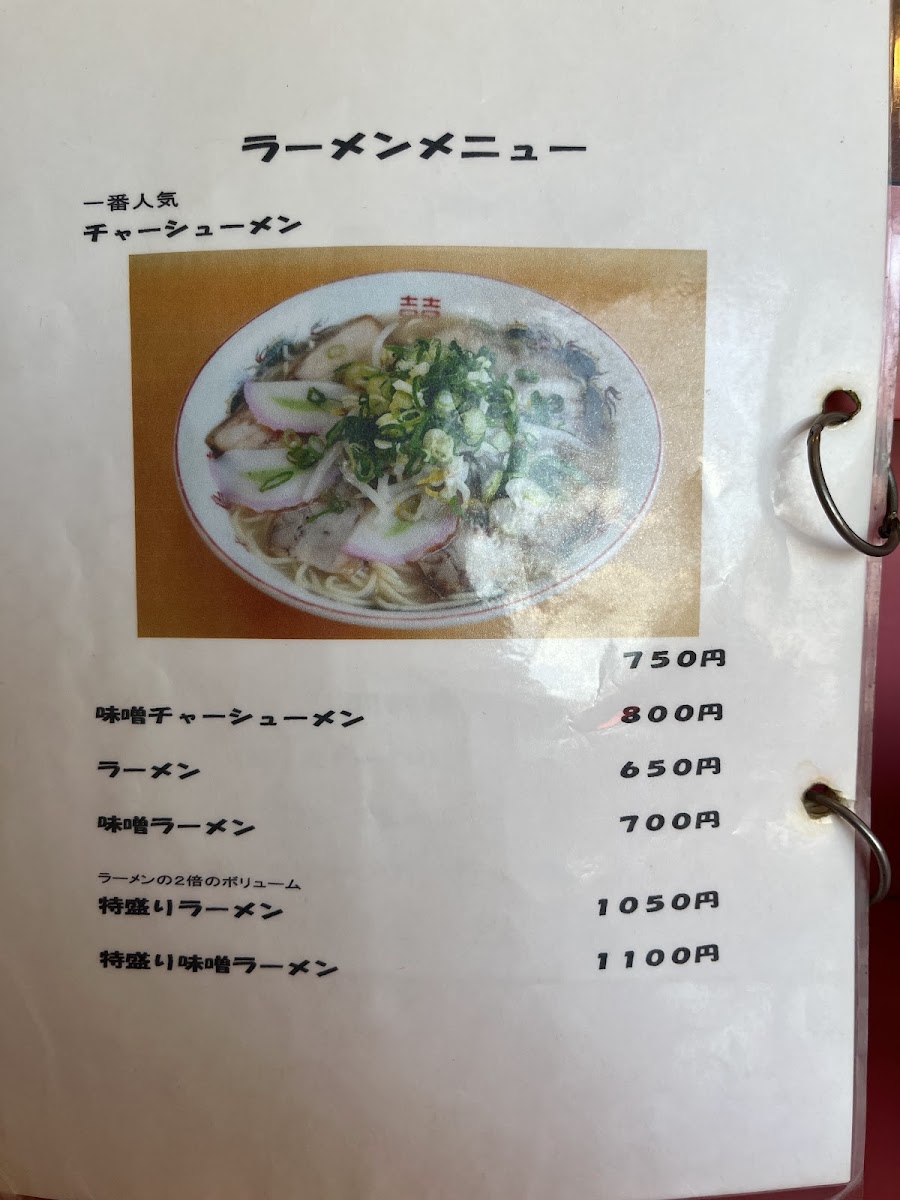 ラーメンメニュー
一番人気
チャーシューメン
囍
750円
味噌チャーシューメン 800円
ラーメン 650円
味噌ラーメン 700円
ラーメンの2倍のボリューム
特盛りラーメン 1050円
特盛り味噌ラーメン 1100円